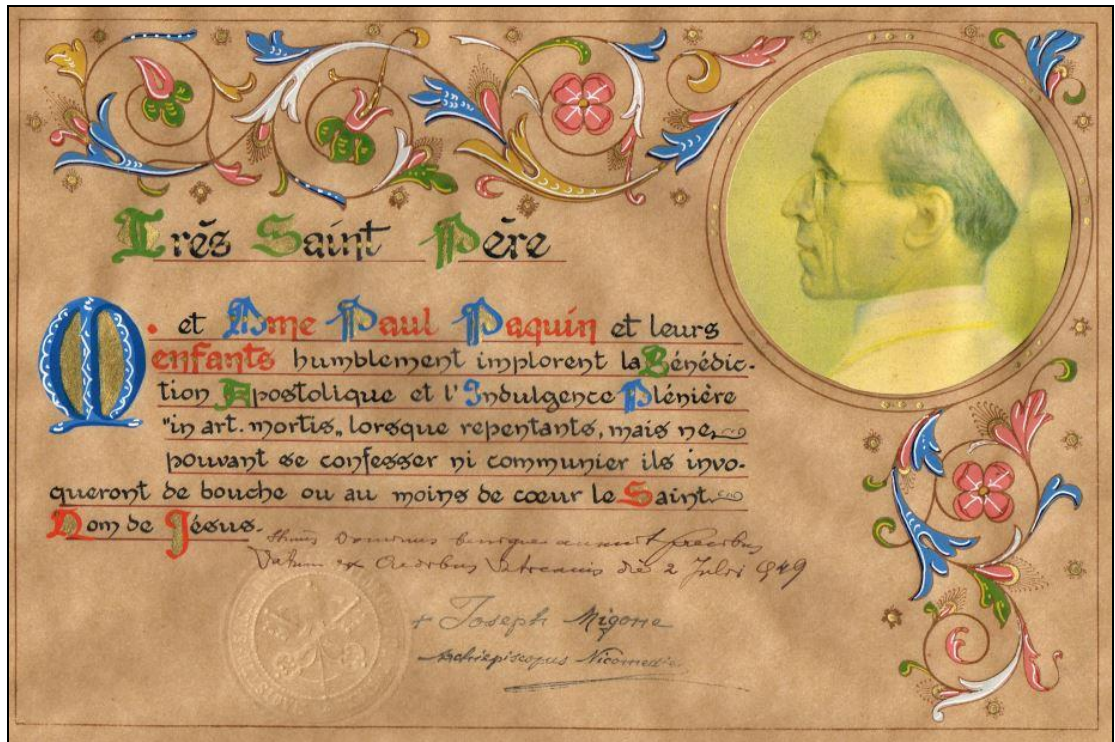 Très Saint Père
M. et Mme Paul Paquin et leurs
enfants humblement implorent la Bénédic-
tion Apostolique et l'Indulgence Plénière
"in art. mortis„ lorsque repentants, mais ne
pouvant se confesser ni communier ils invo-
queront de bouche ou au moins de cœur le Saint
Nom de Jésus.
Dominus benigne annuit precibus
Datum ex Aedibus Vaticanis die 2 Julii 1949
+ Joseph Migone
Archiepiscopus Nicomedien